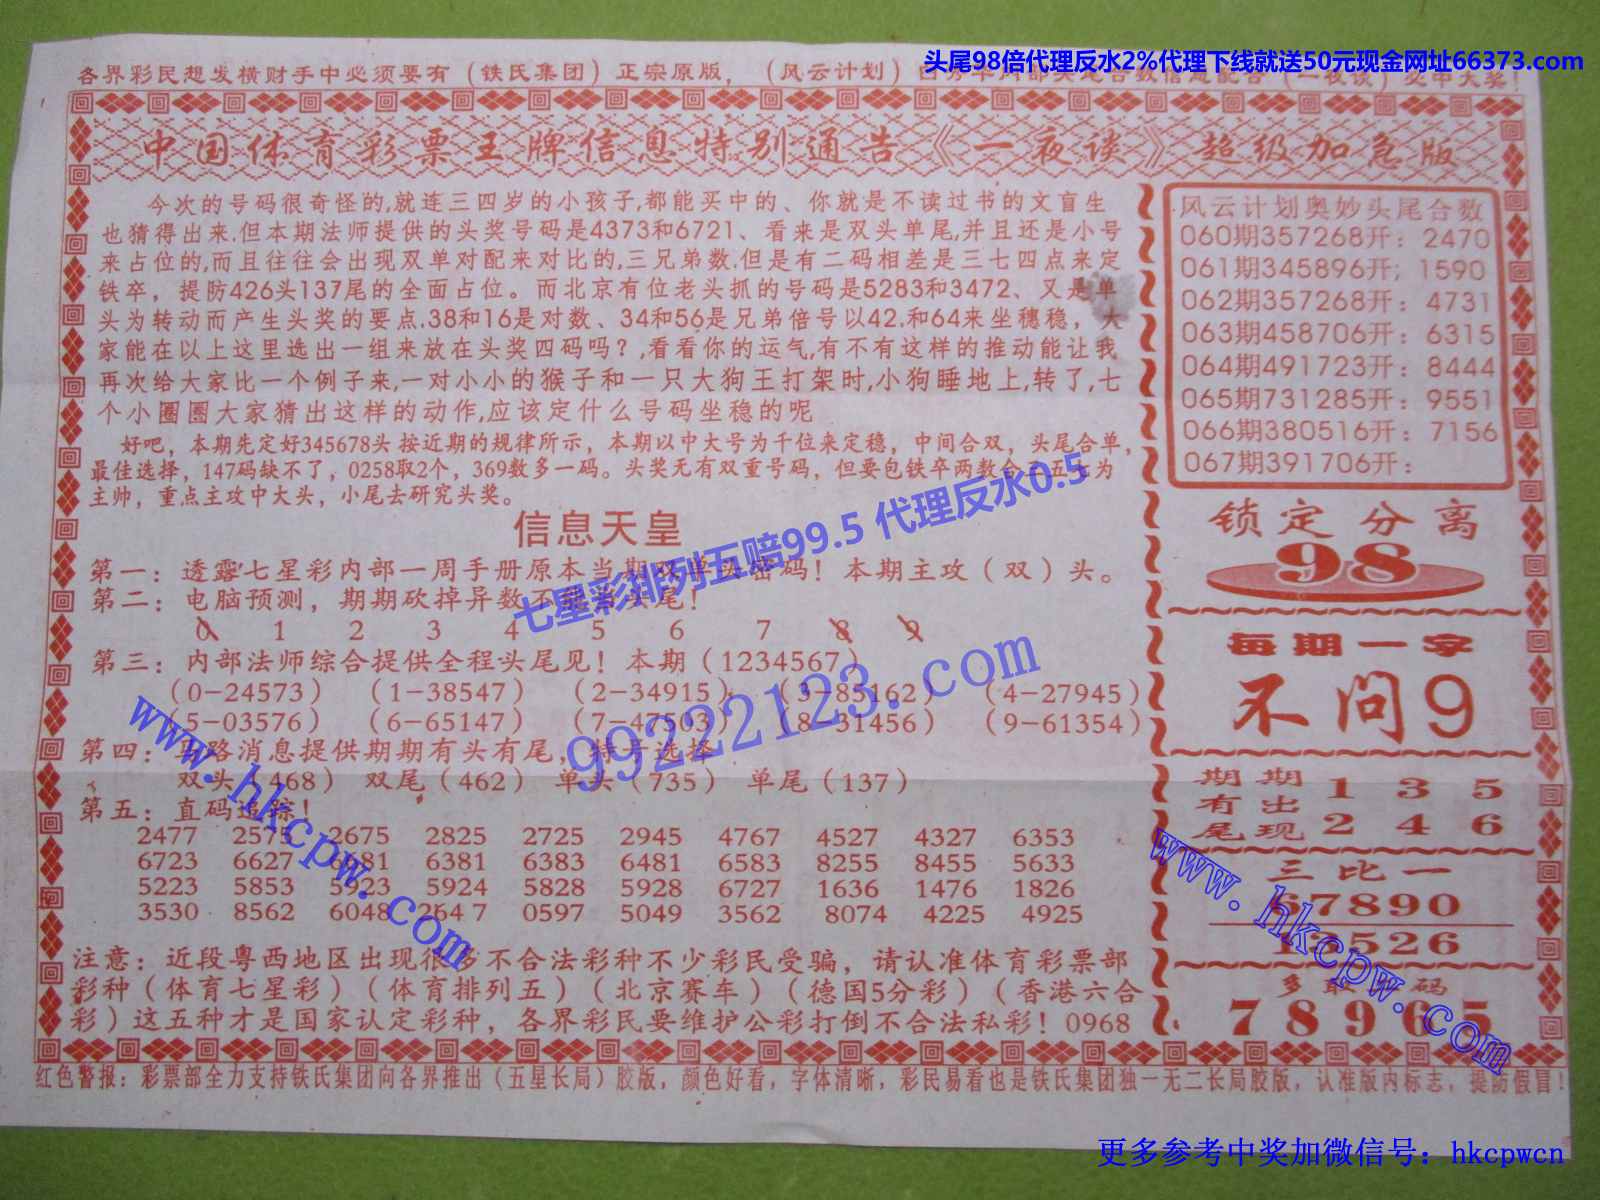 头尾98倍代理反水2%代理下线就送50元现金网址66373.com
各界彩民想发横财手中必须要有（铁氏集团）正宗原版，（风云计划）
中国体育彩票王牌信息特别通告《一夜谈》超级加急版
今次的号码很奇怪的,就连三四岁的小孩子,都能买中的、你就是不读过书的文盲生
也猜得出来.但本期法师提供的头奖号码是4373和6721、看来是双头单尾,并且还是小号
来占位的,而且往往会出现双单对配来对比的,三兄弟数.但是有二码相差是三七四点来定
铁卒，提防426头137尾的全面占位。而北京有位老头抓的号码是5283和3472、又是单
头为转动而产生头奖的要点.38和16是对数、34和56是兄弟倍号以42.和64来坐穗稳，大
家能在以上这里选出一组来放在头奖四码吗？,看看你的运气,有不有这样的推动能让我
再次给大家比一个例子来,一对小小的猴子和一只大狗王打架时,小狗睡地上,转了,七
个小圈圈大家猜出这样的动作,应该定什么号码坐稳的呢
好吧，本期先定好345678头按近期的规律所示，本期以中大号为千位来定稳，中间合双，头尾合单，
最佳选择，147码缺不了，0258取2个，369数多一码。头奖无有双重号码，但要包铁卒两数合三五七为
主帅，重点主攻中大头，小尾去研究头奖。
信息天皇
第一：透露七星彩内部一周手册原本当期双单头密码！本期主攻（双）头。
第二：电脑预测，期期砍掉异数不能当头尾！
0 1 2 3 4 5 6 7 8 9
第三：内部法师综合提供全程头尾见！本期（1234567）
（0-24573）（1-38547）（2-34915）（3-85162）（4-27945）
（5-03576）（6-65147）（7-47503）（8-31456）（9-61354）
第四：马路消息提供期期有头有尾，特号选择
双头（468） 双尾（462） 单头（735） 单尾（137）
第五：直码追踪！
2477 2575 2675 2825 2725 2945 4767 4527 4327 6353
6723 6627 6981 6381 6383 6481 6583 8255 8455 5633
5223 5853 5623 5924 5828 5928 6727 1636 1476 1826
3530 8562 6048 2647 0597 5049 3562 8074 4225 4925
注意：近段粤西地区出现很多不合法彩种不少彩民受骗，请认准体育彩票部
彩种（体育七星彩）（体育排列五）（北京赛车）（德国5分彩）（香港六合
彩）这五种才是国家认定彩种，各界彩民要维护公彩打倒不合法私彩！0968
风云计划奥妙头尾合数
060期357268开：2470
061期345896开；1590
062期357268开：4731
063期458706开：6315
064期491723开：8444
065期731285开：9551
066期380516开：7156
067期391706开：
锁定分离
98
每期一字
不问9
期期 1 3 5
有出
尾现 2 4 6
三比一
67890
13526
多取一码
78965
红色警报：彩票部全力支持铁氏集团向各界推出（五星长局）胶版，颜色好看，字体清晰，彩民易看也是铁氏集团独一无二长局胶版，认准版内标志，提防假冒！
七星彩排列五赔99.5 代理反水0.5
99222123.com
www.hkcpw.com
www.hkcpw.com
更多参考中奖加微信号：hkcpwcn